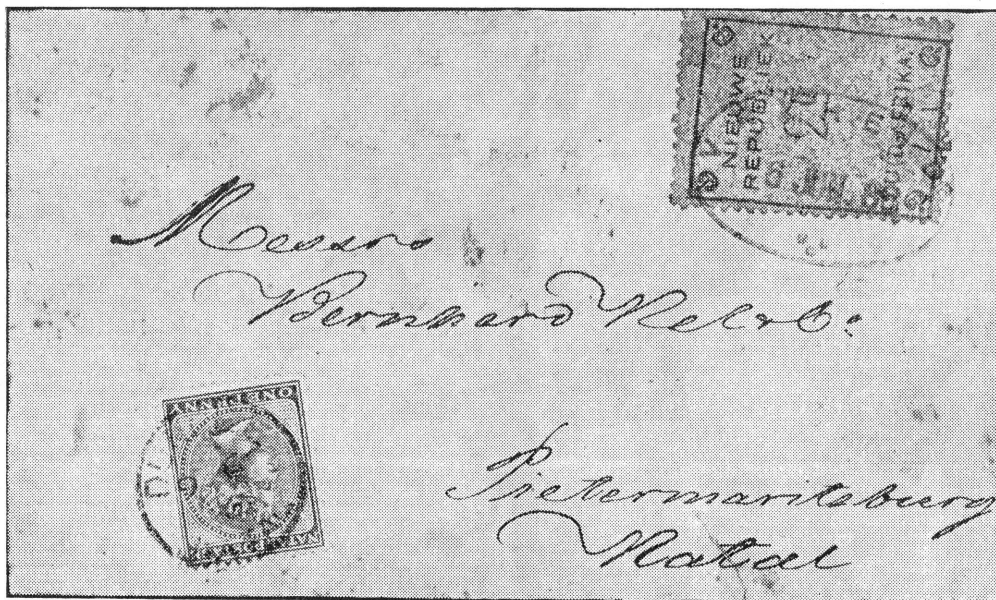 NIEUWE
REPUBLIEK
2d
ZUID AFRIKA.
Messrs
Bernhard &Co.
Pietermaritzburg
Natal
ONE PENNY
NATAL